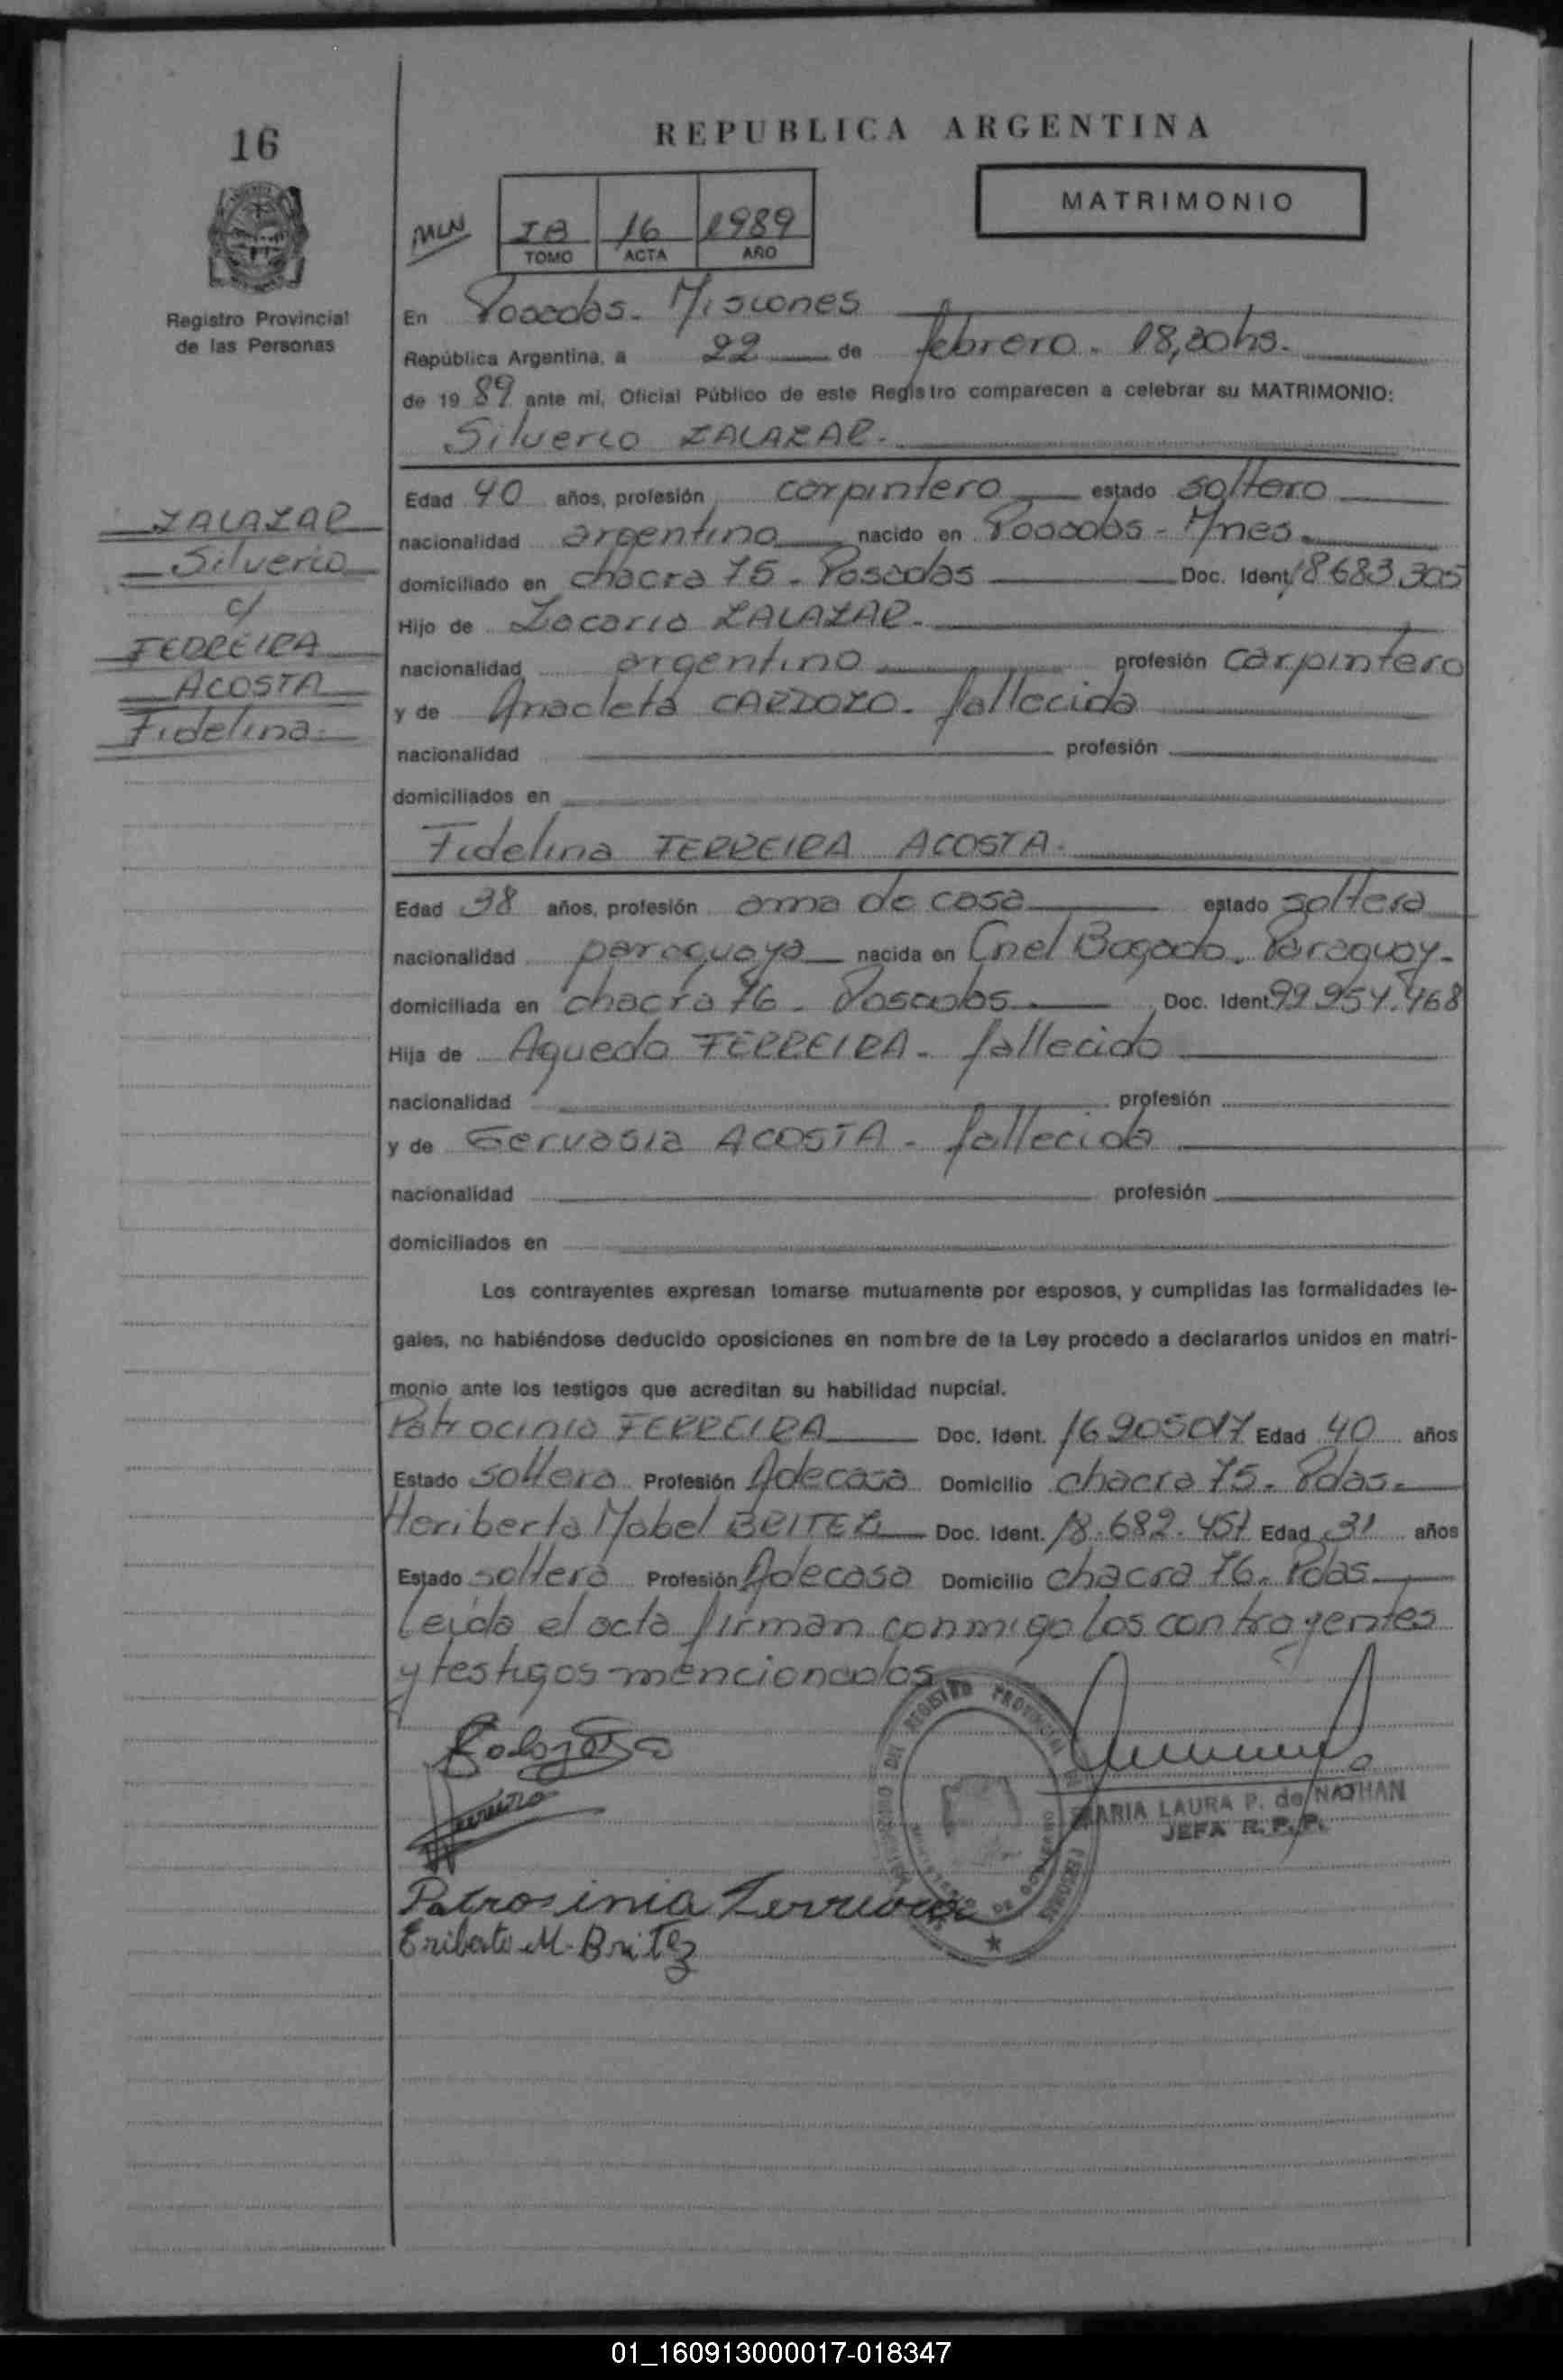 16
REPUBLICA ARGENTINA
MATRIMONIO
MLN
IB 16 1989
TOMO ACTA AÑO
Registro Provincial
de las Personas
En Posadas - Misiones
República Argentina, a 22 de febrero - 18,20 hs.
de 19 89 ante mi, Oficial Público de este Registro comparecen a celebrar su MATRIMONIO:
Silverio ZALAZAR.
ZALAZAR
Silverio
c/
FERREIRA
ACOSTA
Fidelina.
Edad 40 años, profesión carpintero estado soltero
nacionalidad argentino nacido en Posadas - Mnes.
domiciliado en chacra 75 - Posadas Doc. Ident. 8683.305
Hijo de Zacario ZALAZAR.
nacionalidad argentino profesión carpintero
y de Anacleta CARDOZO. fallecida
nacionalidad profesión
domiciliados en
Fidelina FERREIRA ACOSTA.
Edad 38 años, profesión ama de casa estado soltera
nacionalidad paraguaya nacida en Cnel Bogado. Paraguay-
domiciliada en chacra 76 - Posadas Doc. Ident. 99.954.468
Hija de Aguedo FERREIRA - fallecido
nacionalidad profesión
y de Gervasia ACOSTA - fallecida
nacionalidad profesión
domiciliados en
Los contrayentes expresan tomarse mutuamente por esposos, y cumplidas las formalidades le-
gales, no habiéndose deducido oposiciones en nombre de la Ley procedo a declararlos unidos en matri-
monio ante los testigos que acreditan su habilidad nupcial.
Patrocinia FERREIRA Doc. Ident. 16905017 Edad 40 años
Estado soltera Profesión Adecasa Domicilio chacra 75. Pdas.
Heriberta Mabel BRITEZ Doc. Ident. 18.682.451 Edad 31 años
Estado soltera Profesión Adecasa Domicilio chacra 76. Pdas
Leida el acta firman conmigo los contrayentes
y testigos mencionados
MARIA LAURA P. de NATHAN
JEFA R. P. P.
Patrosinia Ferreira
Eriberto M. Britez
01_160913000017-018347